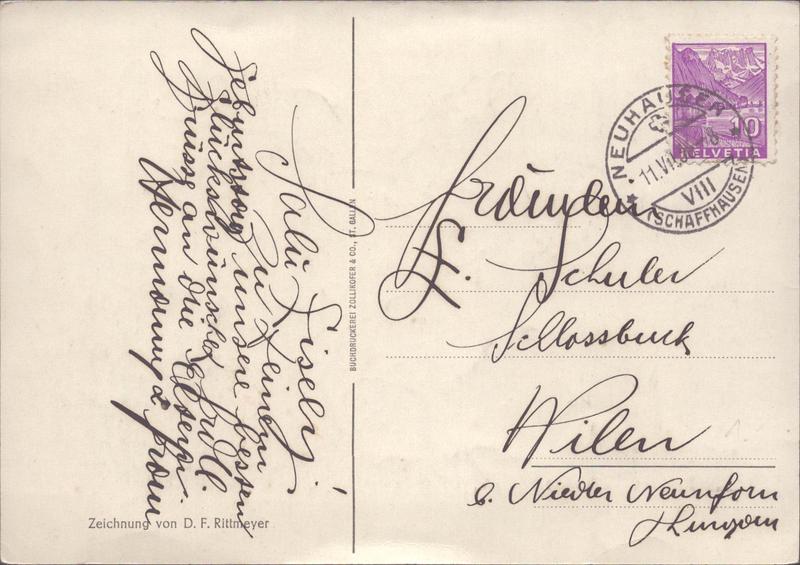 Salü Liseli!
Zu Deinem
Geburtstag unsere besten
Glückswünsche! Fröhl.
Grüsse an die Eltern.
Hermann & Frau
Zeichnung von D. F. Rittmeyer
BUCHDRUCKEREI ZOLLIKOFER & CO., ST. GALLEN
10
HELVETIA
NEUHAUSEN
VIII
(SCHAFFHAUSEN)
Fräulein
L. Schuler
Schlossbuck
Wilen
b. Nieder Neunforn
Thurgau